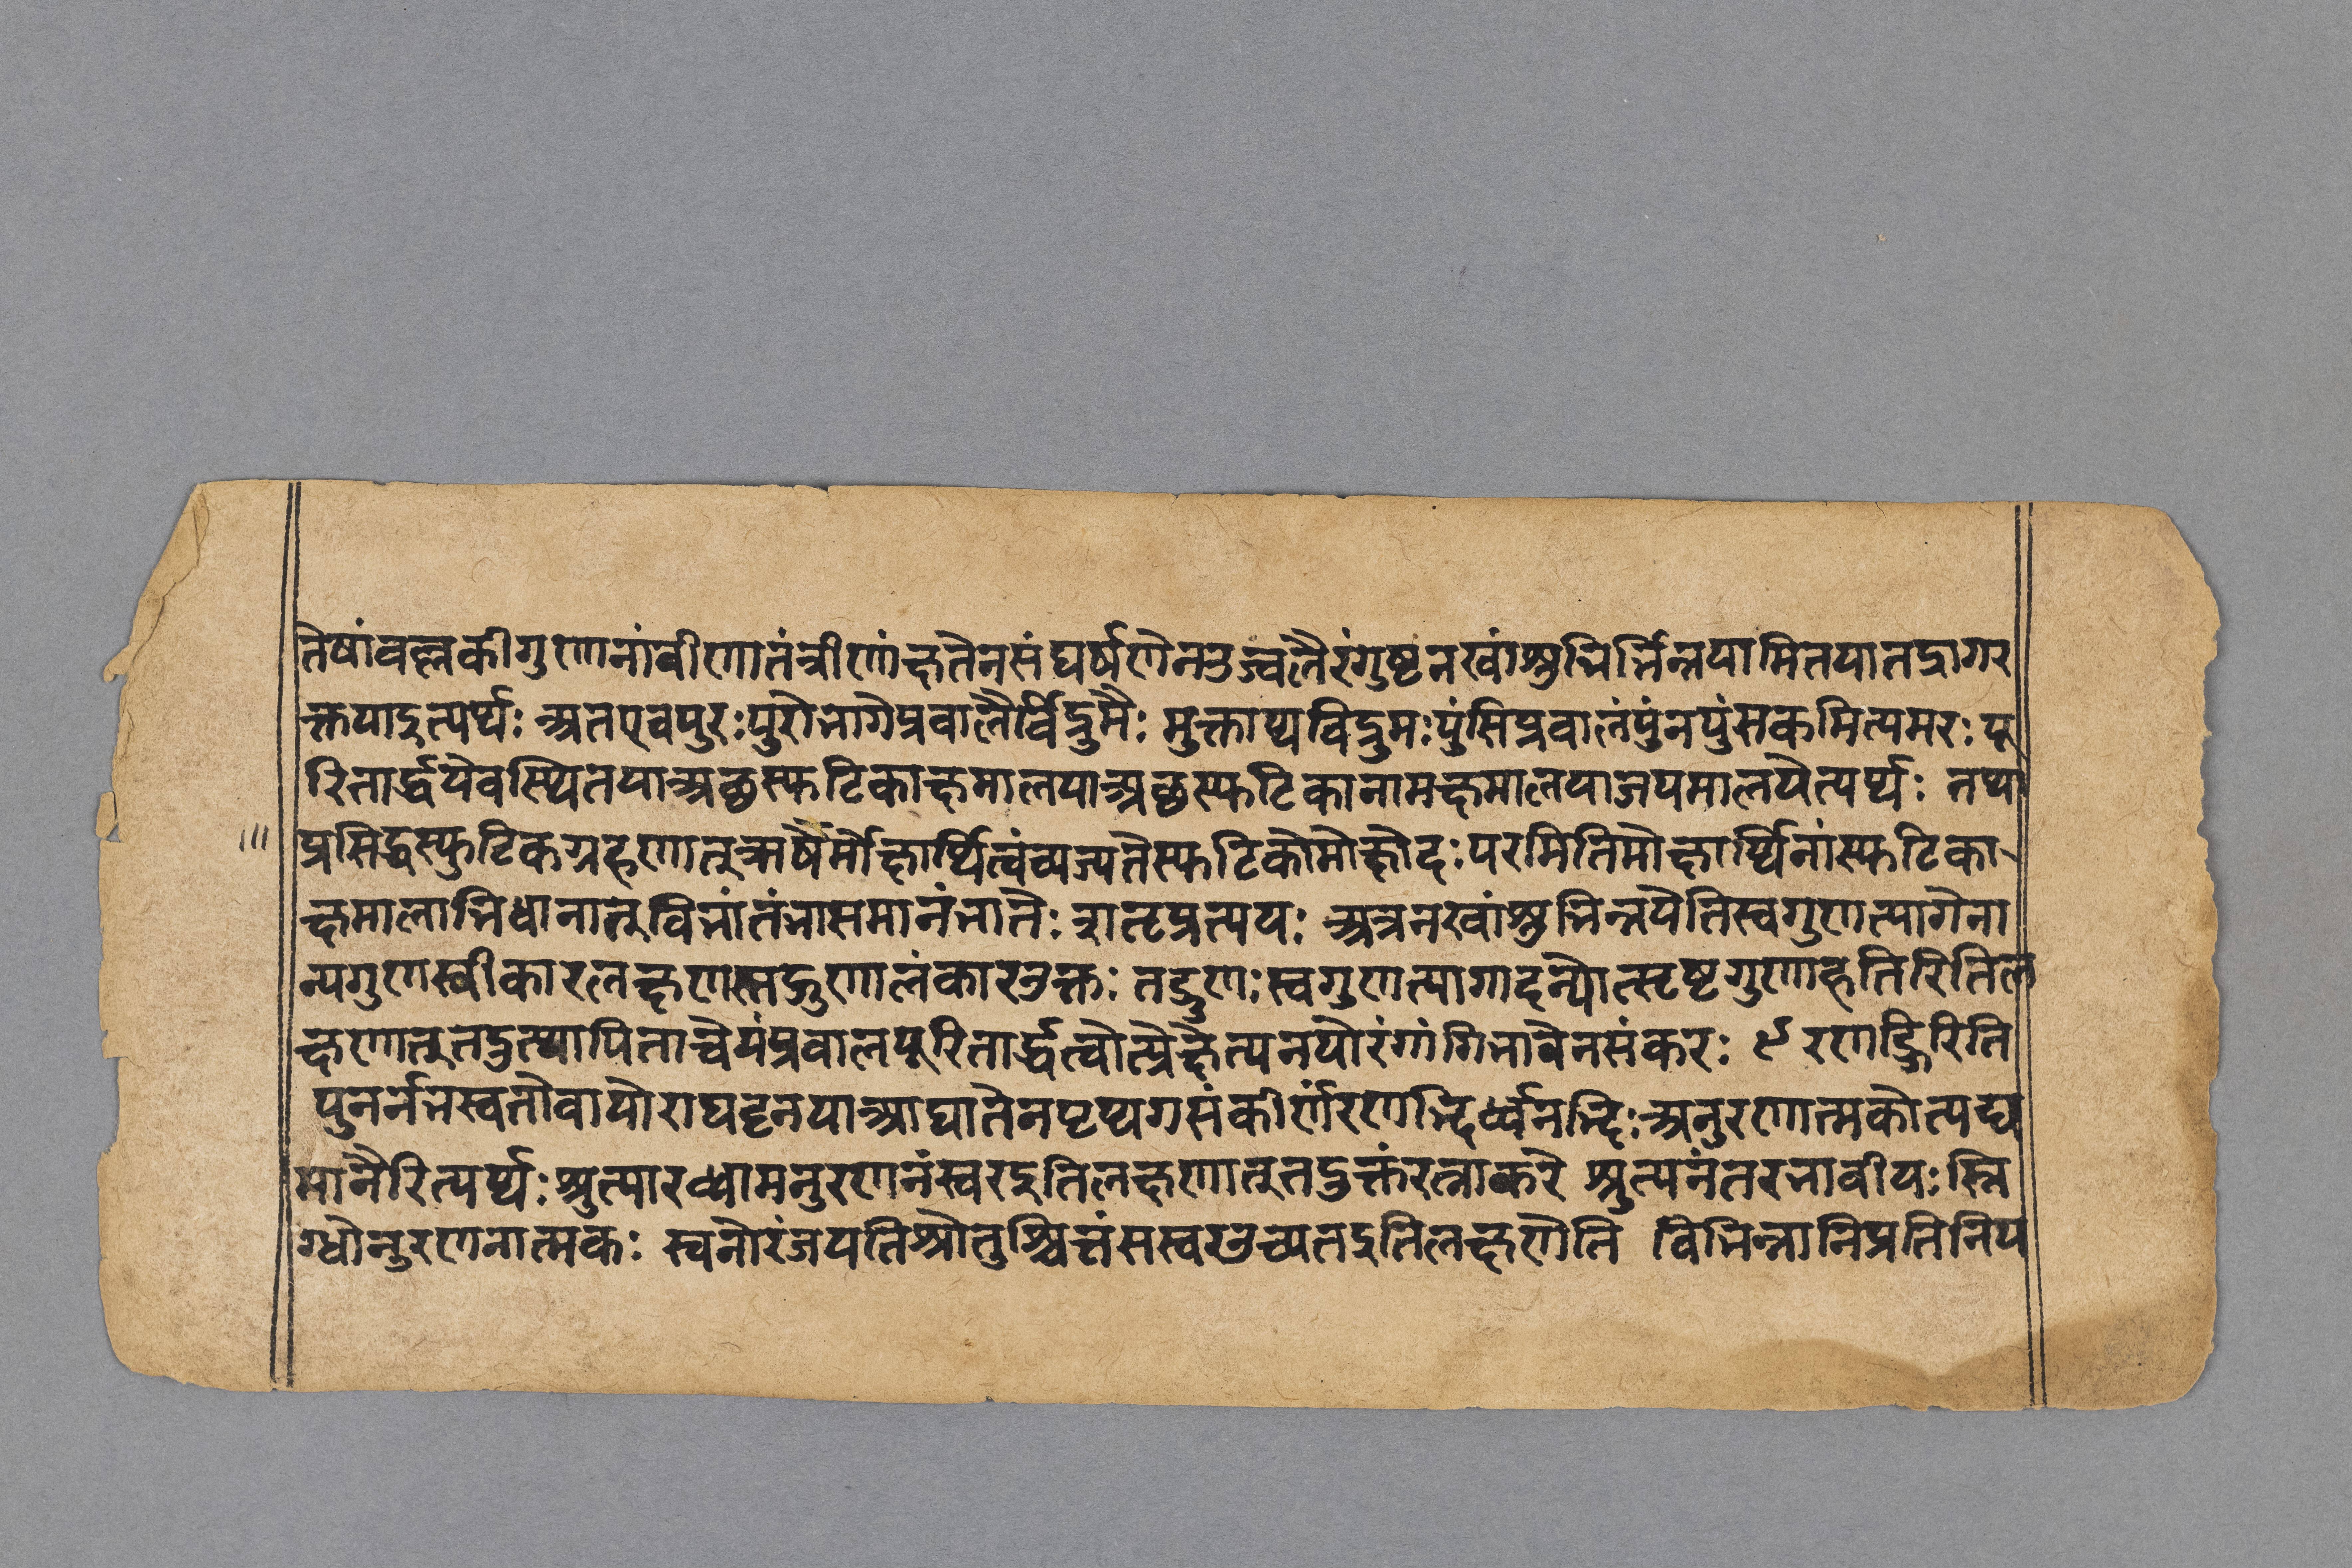 तेषांवल्लकीगुणानांवीणातंत्रीणांक्षतेनसंघर्षणेनउज्वलैरंगुष्टनखांश्रुभिर्भिन्नयामितयातद्रागर
क्तयाइत्यर्थः अतएवपुरःपुरोभागेप्रवालैर्विद्रुमैः मुक्ताथविद्रुमःपुंसिप्रवालंपुंनपुंसकमित्यमरः पू
रितार्द्धयेवस्थितयाअछस्फटिकाक्षमालयाअछस्फटिकानामक्षमालयाजपमालयेत्यर्थः तथा
प्रसिद्धस्फुटिकग्रहणात्तुऋषेर्मोक्षार्थित्वंव्यज्यतेस्फटिकोमोक्षोदःपरमितिमोक्षार्थिनांस्फटिका
क्षमालाभिधानात्तुविभांतंभासमानंभातेः शतृप्रत्ययः अत्रनखांश्रुभिन्नयेतिस्वगुणत्यागेना
न्यगुणस्वीकारलक्षणस्तद्गुणालंकारउक्तः तद्गुणःस्वगुणत्यागादन्योत्सृष्टगुणाहृतिरितिल
क्षणात्तुतदुत्थापिताचेयंप्रवालपूरितार्द्धत्वोत्प्रेक्षेत्यनयोरंगांगिभावेनसंकरः ९ रणद्भिरिति
पुनर्नभस्वतोवायोराघट्टनयाआघातेनपृथगसंकीर्णंरणद्भिर्ध्वनद्भिःअनुरणात्मकोत्पद्य
मानैरित्यर्थः श्रुत्यारब्धामनुरणनंस्वरइतिलक्षणात्तुतदुक्तंरत्नाकरे श्रुत्यनंतरभावीयःस्नि
ग्धोनुरणनात्मकः स्वनोरंजयतिश्रोतुश्चित्तंसस्वरउच्यतइतिलक्षणेति विभिन्नानिप्रतिनिय